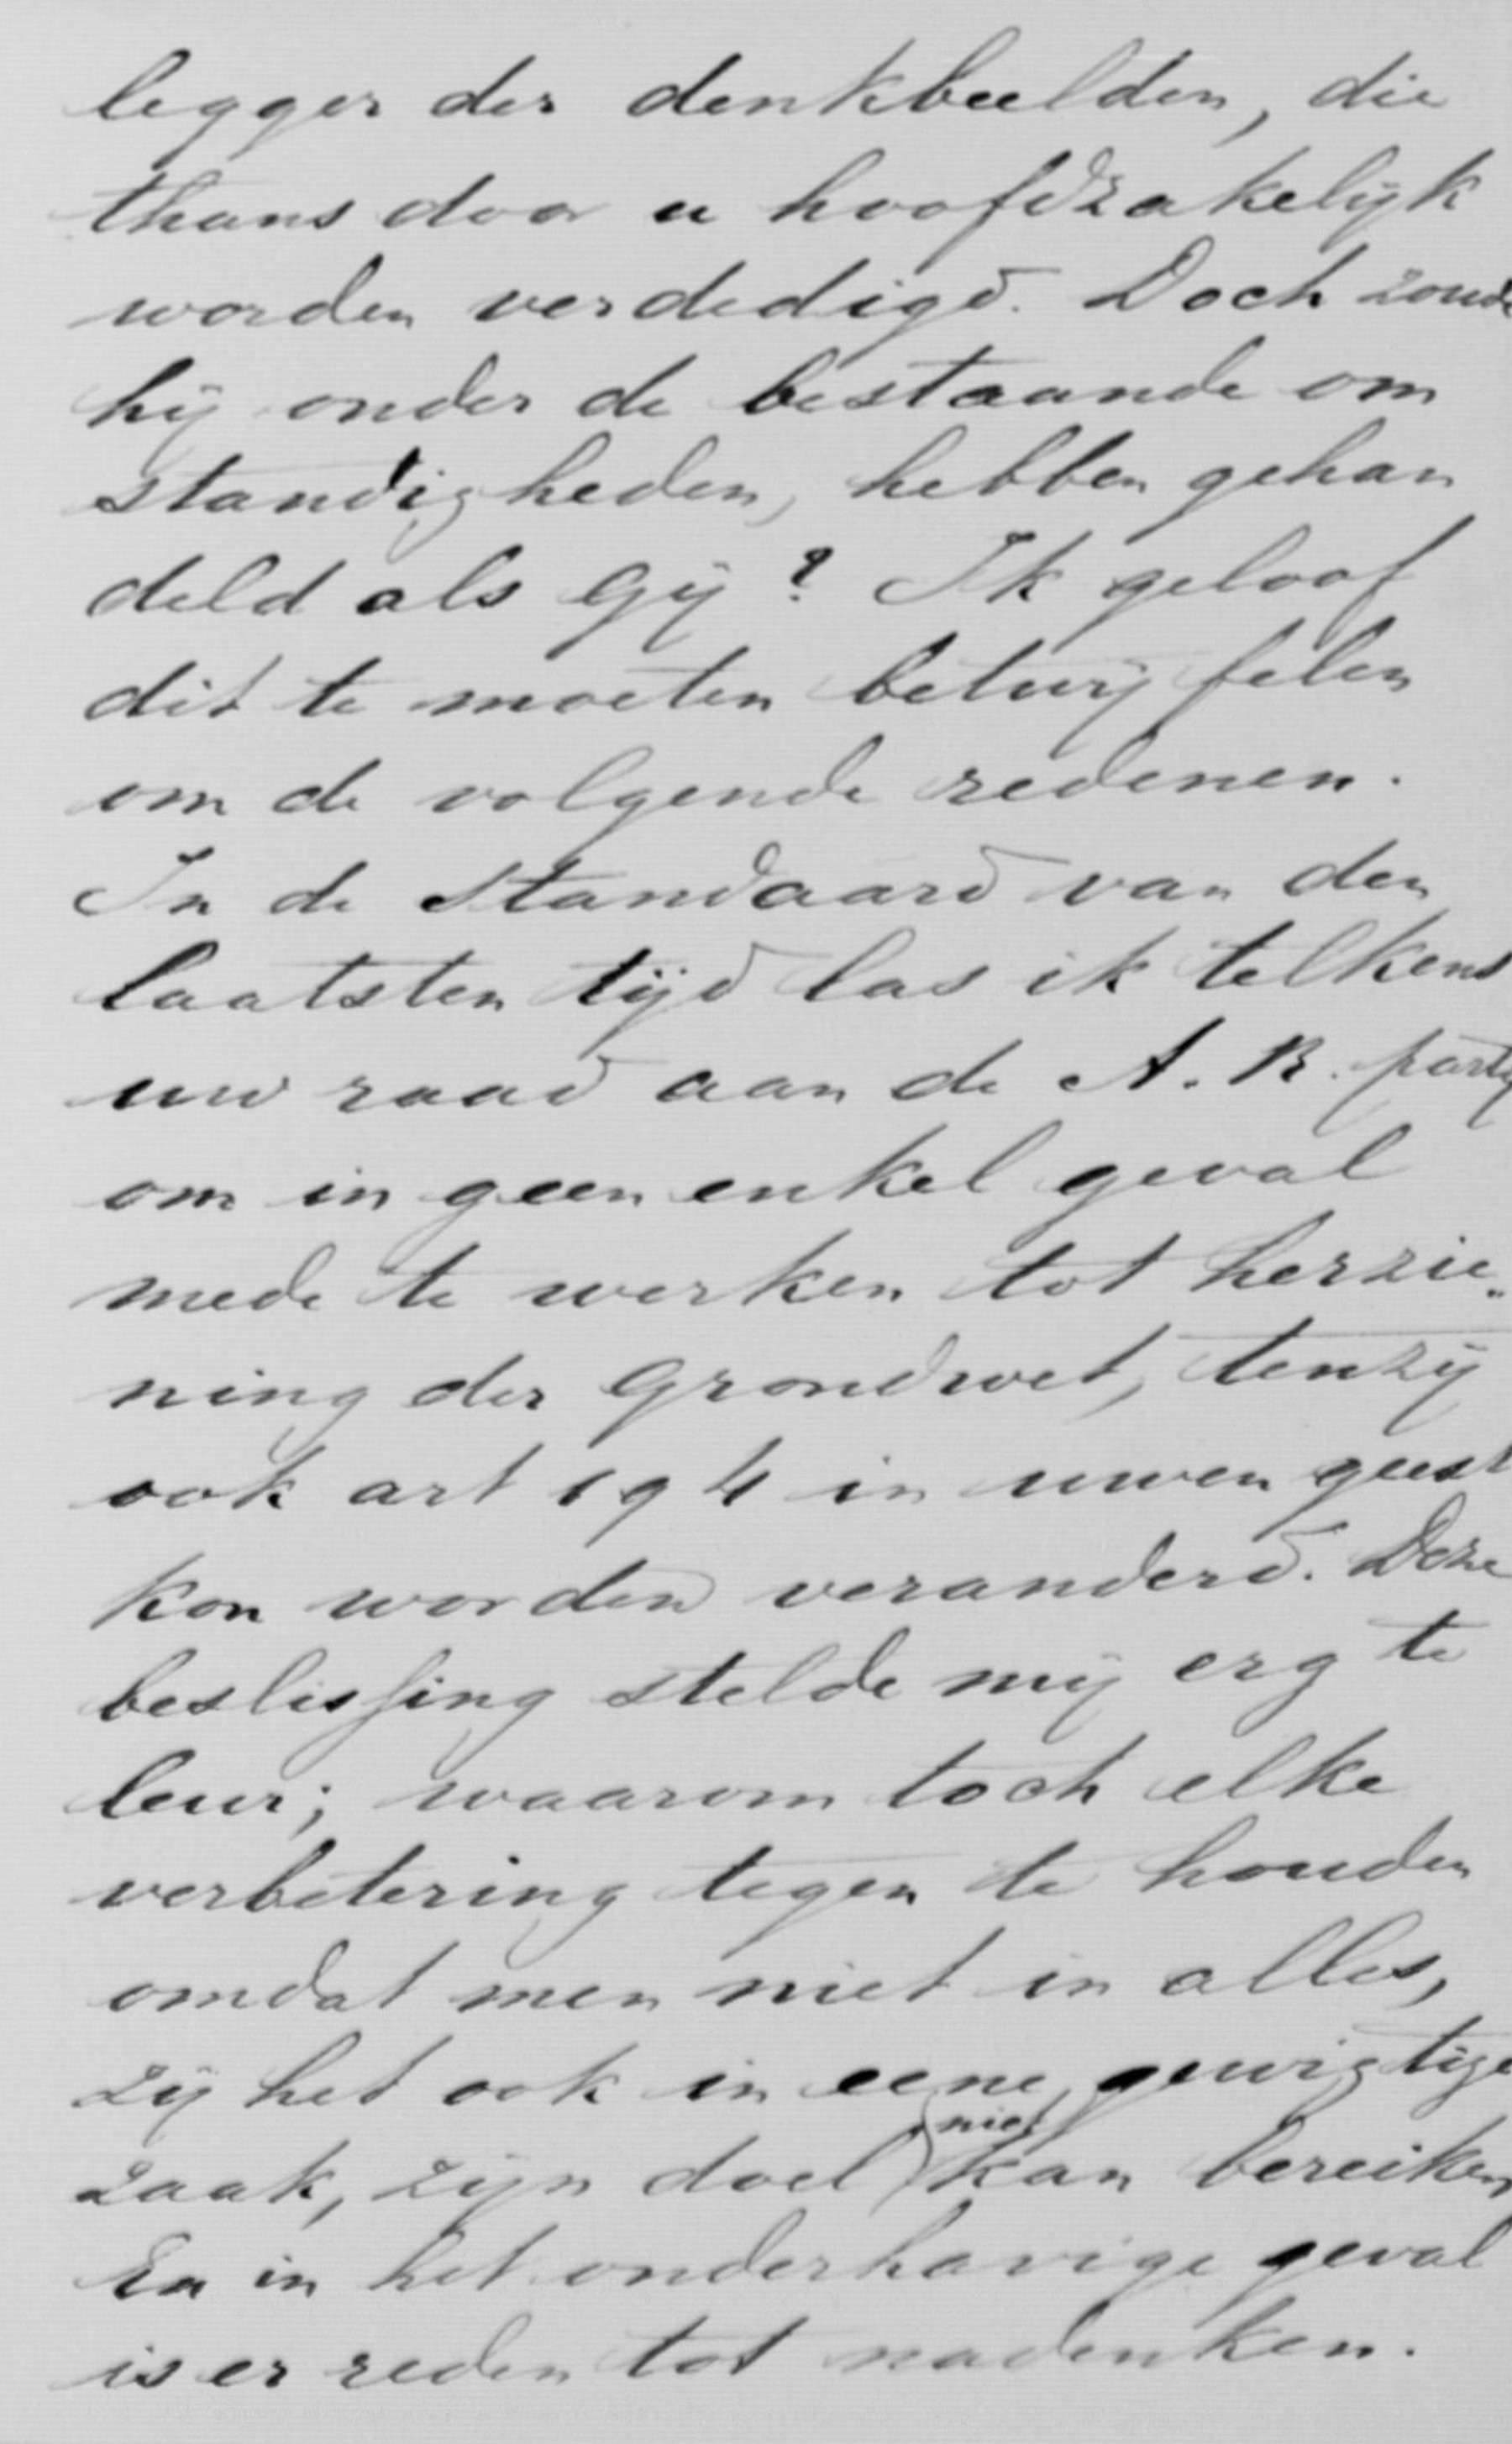 legger der denkbeelden, die
thans door u hoofdzakelijk
worden verdedigd. Doch zoude
hij onder de bestaande om
standigheden, hebben gehan
deld als Gij? Ik geloof
dit te moeten betwijfelen
om de volgende redenen.
In de Standaard van den
laatsten tijd las ik telkens
uw raad aan de A. R. partij
om in geen enkel geval
mede te werken tot herzie„
ning der Grondwet, tenzij
ook art 194 in uwen geest
kon worden veranderd. Deze
beslissing stelde mij erg te
leur; waarom toch elke
verbetering tegen te houden
omdat men niet in alles,
zij het ook in eene gewigtige
zaak, zijn doel niet kan bereiken
En in het onderhavige geval
is er reden tot nadenken.